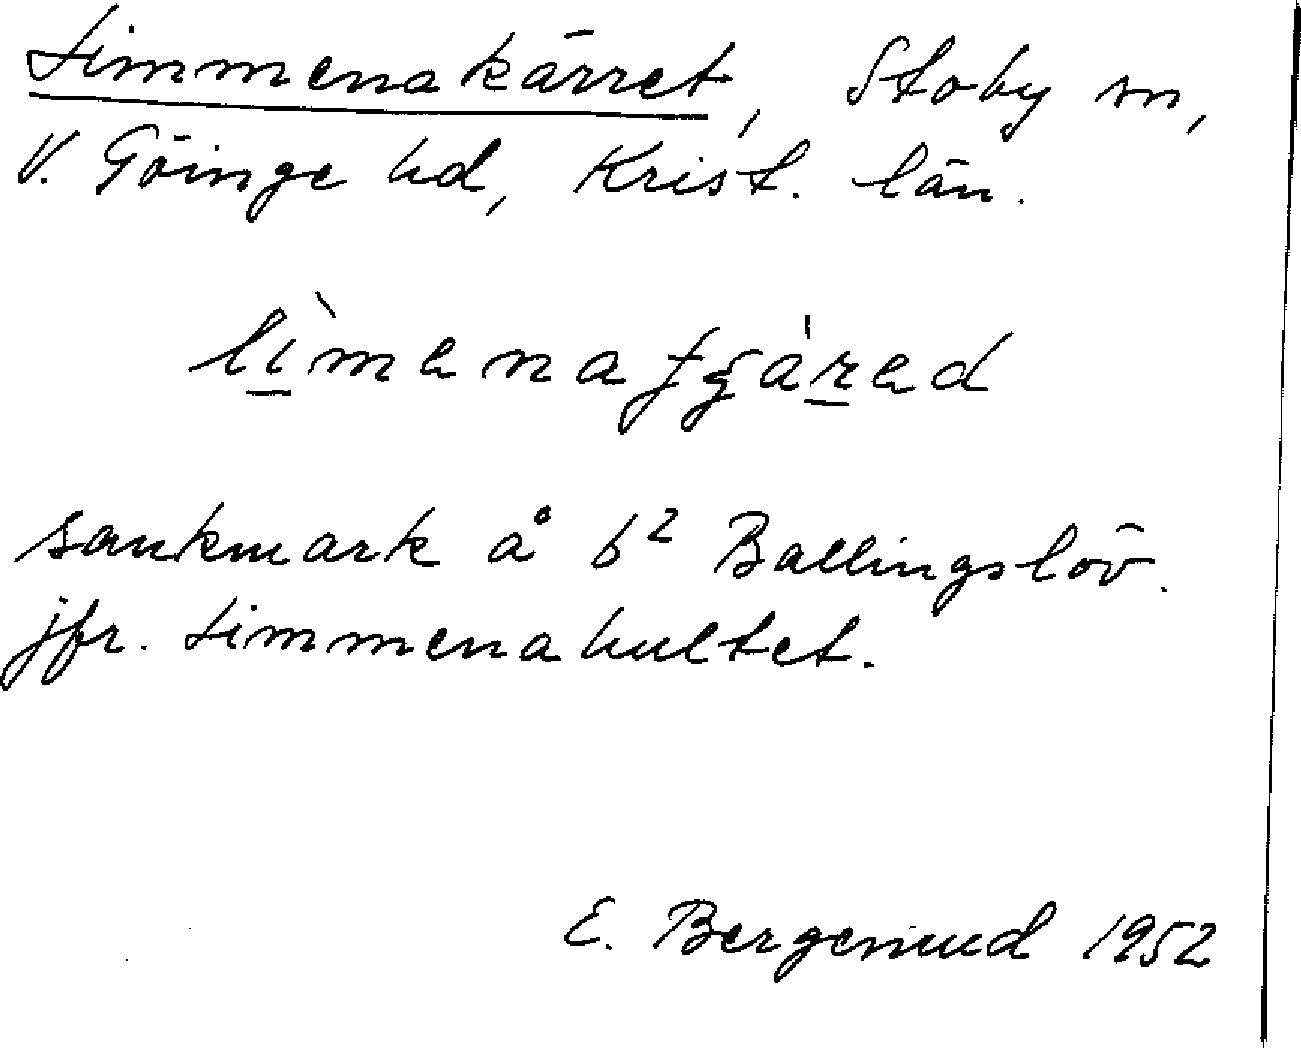 Limmenakärret, Stoby sn,
V. Göinge hd, Krist. län.
sankmark å b² Ballingslöv.
jfr. Limmenahultet.
E. Bergenund 1952